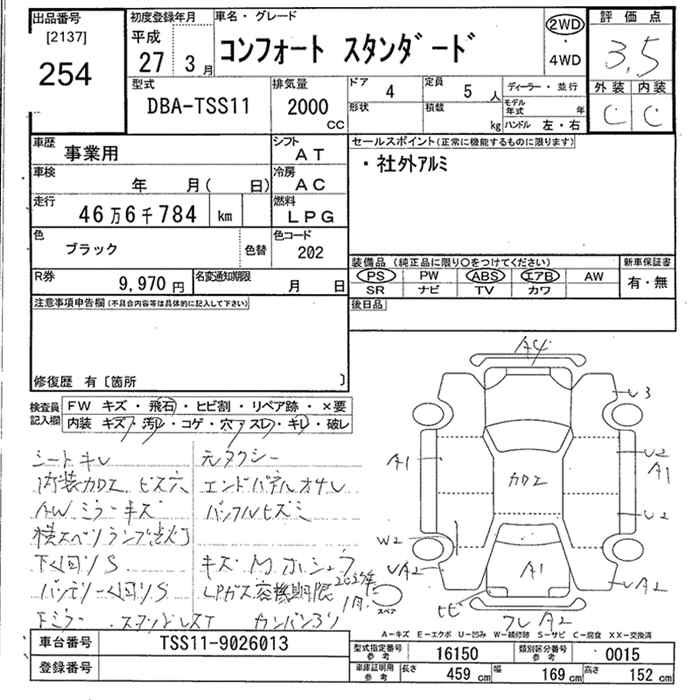 出品番号
[2137]
254
初度登録年月
平成
27 3月
車名・グレード
コンフォート スタンダード
2WD
・
4WD
評価点
3.5
外装 内装
C C
型式
DBA-TSS11
排気量
2000
CC
ドア 4
定員 5 人
形状
積載 kg
ディーラー・並行
モデル年式 年
ハンドル 左・右
車歴 事業用
シフト AT
車検 年 月( 日)
冷房 AC
走行 46万6千784 km
燃料 LPG
色 ブラック 色替
色コード 202
R券 9,970円
名変通知期限 月 日
セールスポイント(正常に機能するものに限ります)
・社外アルミ
装備品(純正品に限り○をつけてください)
新車保証書
PS PW ABS エアB AW
SR ナビ TV カワ
有・無
後日品
注意事項申告欄(不具合内容等は具体的に記入して下さい)
修復歴 有〔箇所 〕
検査員記入欄
FW キズ・飛石・ヒビ割・リペア跡・×要
内装 キズ・汚レ・コゲ・穴・スレ・キレ・破レ
シートキレ 元タクシー
内装カロエ ビス穴
AWミラーキズ
下廻りS キズMホシュウ
LPガス容機期限
1月
A4
U3
A1
U2
A1
カロエ
U2
W2
UA2
A1
UA2
ヒビ
A2
スペア
A-キズ E-エクボ U-凹み W-補修跡 S-サビ C-腐食 XX-交換済
車台番号 TSS11-9026013
登録番号
型式指定番号 参考 16150
類別区分番号 参考 0015
車庫証明用 参考
長さ 459 cm 幅 169 cm 高さ 152 cm